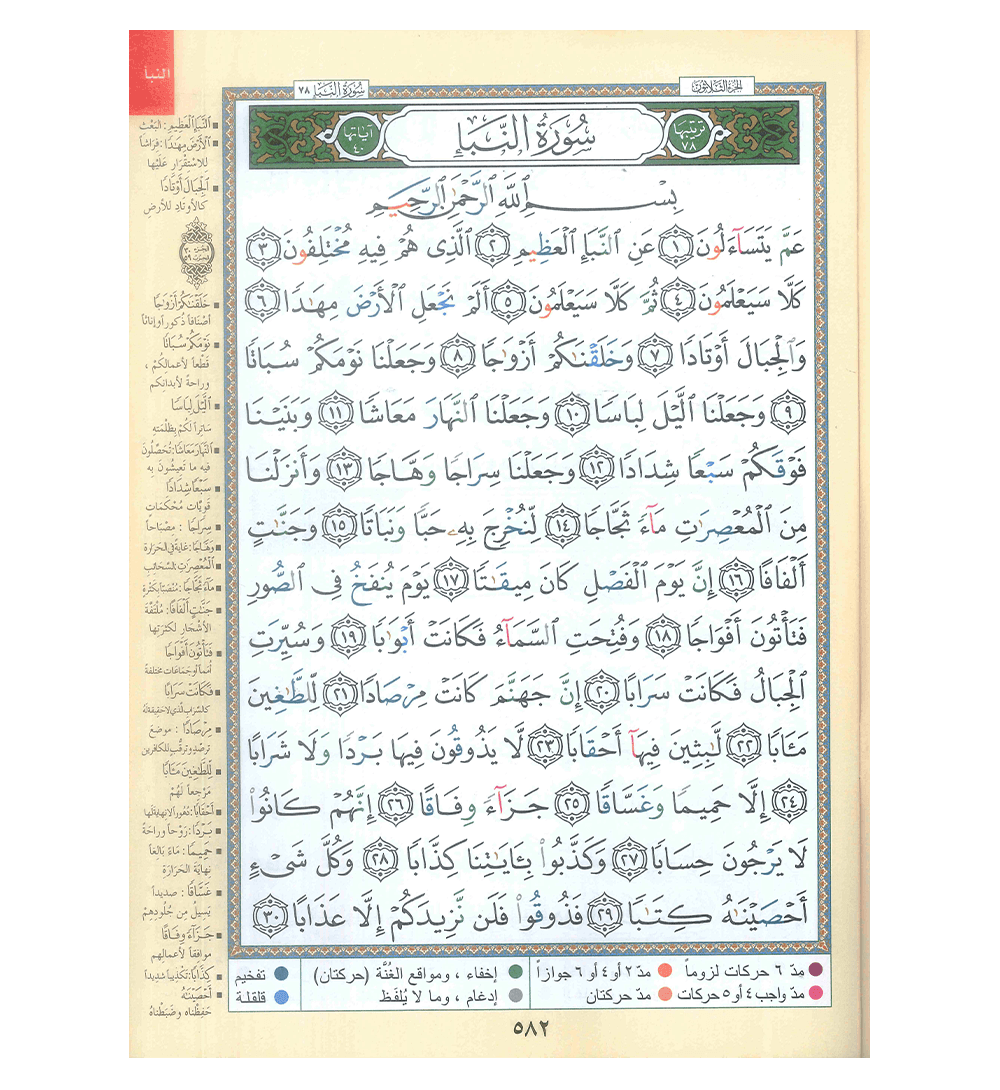 الجزء الثلاثون
سورة النبإ ٧٨
النبأ
ترتيبها ٧٨
سُورَةُ النَّبَإِ
آياتها ٤٠
بِسْمِ ٱللَّهِ ٱلرَّحْمَٰنِ ٱلرَّحِيمِ
عَمَّ يَتَسَآءَلُونَ ١ عَنِ ٱلنَّبَإِ ٱلْعَظِيمِ ٢ ٱلَّذِى هُمْ فِيهِ مُخْتَلِفُونَ ٣
كَلَّا سَيَعْلَمُونَ ٤ ثُمَّ كَلَّا سَيَعْلَمُونَ ٥ أَلَمْ نَجْعَلِ ٱلْأَرْضَ مِهَٰدًا ٦
وَٱلْجِبَالَ أَوْتَادًا ٧ وَخَلَقْنَٰكُمْ أَزْوَٰجًا ٨ وَجَعَلْنَا نَوْمَكُمْ سُبَاتًا
٩ وَجَعَلْنَا ٱلَّيْلَ لِبَاسًا ١٠ وَجَعَلْنَا ٱلنَّهَارَ مَعَاشًا ١١ وَبَنَيْنَا
فَوْقَكُمْ سَبْعًا شِدَادًا ١٢ وَجَعَلْنَا سِرَاجًا وَهَّاجًا ١٣ وَأَنزَلْنَا
مِنَ ٱلْمُعْصِرَٰتِ مَآءً ثَجَّاجًا ١٤ لِّنُخْرِجَ بِهِۦ حَبًّا وَنَبَاتًا ١٥ وَجَنَّٰتٍ
أَلْفَافًا ١٦ إِنَّ يَوْمَ ٱلْفَصْلِ كَانَ مِيقَٰتًا ١٧ يَوْمَ يُنفَخُ فِى ٱلصُّورِ
فَتَأْتُونَ أَفْوَاجًا ١٨ وَفُتِحَتِ ٱلسَّمَآءُ فَكَانَتْ أَبْوَٰبًا ١٩ وَسُيِّرَتِ
ٱلْجِبَالُ فَكَانَتْ سَرَابًا ٢٠ إِنَّ جَهَنَّمَ كَانَتْ مِرْصَادًا ٢١ لِّلطَّٰغِينَ
مَـَٔابًا ٢٢ لَّٰبِثِينَ فِيهَآ أَحْقَابًا ٢٣ لَّا يَذُوقُونَ فِيهَا بَرْدًا وَلَا شَرَابًا
٢٤ إِلَّا حَمِيمًا وَغَسَّاقًا ٢٥ جَزَآءً وِفَاقًا ٢٦ إِنَّهُمْ كَانُوا۟
لَا يَرْجُونَ حِسَابًا ٢٧ وَكَذَّبُوا۟ بِـَٔايَٰتِنَا كِذَّابًا ٢٨ وَكُلَّ شَىْءٍ
أَحْصَيْنَٰهُ كِتَٰبًا ٢٩ فَذُوقُوا۟ فَلَن نَّزِيدَكُمْ إِلَّا عَذَابًا ٣٠
النَّبَإِ العَظِيمِ: البَعْث
الأَرْضَ مِهَٰدًا: فِرَاشاً
للاسْتِقْرَارِ عَلَيْهَا
الْجِبَالَ أَوْتَادًا
كالأوتاد للأرض
الجزء ٣٠
الحزب ٥٩
خَلَقْنَٰكُمْ أَزْوَٰجًا
أصنافاً ذكور أو إناثاً
نَوْمَكُمْ سُبَاتًا
قَطعاً لأعمالِكُمْ ،
وراحةً لأبدانِكم
ٱلَّيْلَ لِبَاسًا
سَاتِراً لَكُمْ بظُلْمَتِهِ
النَّهَارَ مَعَاشًا: تُحَصِّلُونَ
فيه ما تَعِيشُونَ بِه
سَبْعًا شِدَادًا
قَوِيَّاتٍ مُحْكَمَات
سِرَاجًا : مِصْبَاحاً
وَهَّاجًا: غاية في الحَرارة
المُعْصِرَٰتِ: السَّحَائِبِ
مَآءً ثَجَّاجًا: مُنْصَبّاً بكثرة
جَنَّٰتٍ أَلْفَافًا: مُلْتَفَّةَ
الأشجار لكثرتها
فَتَأْتُونَ أَفْوَاجًا
أُمَماً أو جماعات مختلفة
فَكَانَتْ سَرَابًا
كالسَّراب الذي لا حقيقة له
مِرْصَادًا : موضعَ
ترصّدٍ وترقُّبٍ للكافرين
لِّلطَّٰغِينَ مَـَٔابًا
مَرْجِعاً لَهُمْ
أَحْقَابًا: دُهُوراً لا نهاية لها
بَرْدًا: رَوْحاً وراحةً
حَمِيمًا: مَاءً بَالغاً
نهايَةَ الحَرَارَةِ
غَسَّاقًا : صديداً
يَسيلُ مِن جُلُودِهِمْ
جَزَآءً وِفَاقًا
موافقاً لأعمالهم
كِذَّابًا: تكذيباً شديداً
أَحْصَيْنَٰهُ
حَفِظْنَاه وضَبَطْنَاهُ
مدّ ٦ حركات لزوماً مدّ ٢ أو ٤ أو ٦ جوازاً إخفاء ، ومواقع الغُنَّة (حركتان) تفخيم
مدّ واجب ٤ أو ٥ حركات مدّ حركتان إدغام ، وما لا يُلفَظ قلقلة
٥٨٢